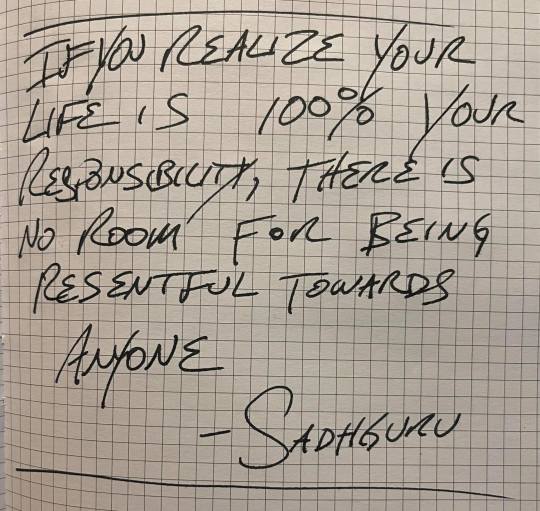 IF YOU REALIZE YOUR
LIFE IS 100% YOUR
RESPONSIBILITY, THERE IS
NO ROOM FOR BEING
RESENTFUL TOWARDS
ANYONE
- SADHGURU